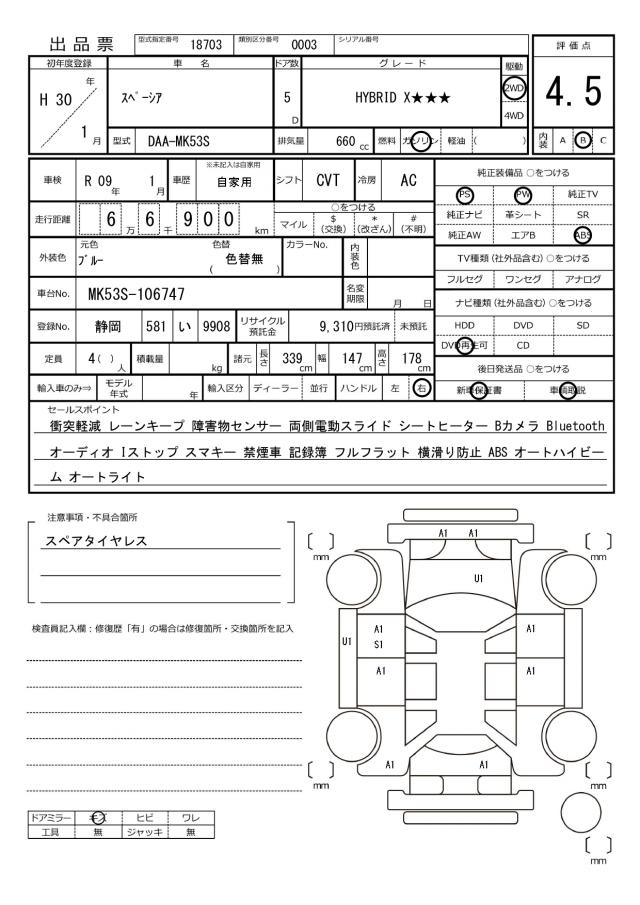 出品票
型式指定番号 18703 類別区分番号 0003 シリアル番号
評価点
4.5
内装 A B C
初年度登録 車名 ドア数 グレード 駆動
H 30 年 1 月
スペーシア
5 D
HYBRID X★★★
2WD
4WD
型式 DAA-MK53S 排気量 660 cc 燃料 ガソリン 軽油 ( )
車検 R 09 年 1 月 車歴 ※未記入は自家用 自家用 シフト CVT 冷房 AC
走行距離 6 6 万 千 9 0 0 km
○をつける
マイル $(交換) *(改ざん) #(不明)
外装色 元色 ブルー 色替 ( 色替無 ) カラーNo. 内装色
車台No. MK53S-106747 名変期限 月 日
登録No. 静岡 581 い 9908 リサイクル預託金 9,310円預託済 未預託
定員 4( )人 積載量 kg 諸元 長さ 339 cm 幅 147 cm 高さ 178 cm
輸入車のみ⇒ モデル年式 年 輸入区分 ディーラー 並行 ハンドル 左 右
純正装備品 ○をつける
PS PW 純正TV
純正ナビ 革シート SR
純正AW エアB ABS
TV種類(社外品含む)○をつける
フルセグ ワンセグ アナログ
ナビ種類(社外品含む)○をつける
HDD DVD SD
DVD再生可 CD
後日発送品 ○をつける
新車保証書 車輌取説
セールスポイント
衝突軽減 レーンキープ 障害物センサー 両側電動スライド シートヒーター Bカメラ Bluetooth
オーディオ Iストップ スマキー 禁煙車 記録簿 フルフラット 横滑り防止 ABS オートハイビー
ム オートライト
注意事項・不具合箇所
スペアタイヤレス
検査員記入欄:修復歴「有」の場合は修復箇所・交換箇所を記入
ドアミラー キズ ヒビ ワレ
工具 無 ジャッキ 無
〔 〕mm
〔 〕mm
A1 A1
U1
U1
A1
S1
A1
A1
A1
A1
A1
〔 〕mm
〔 〕mm
〔 〕mm